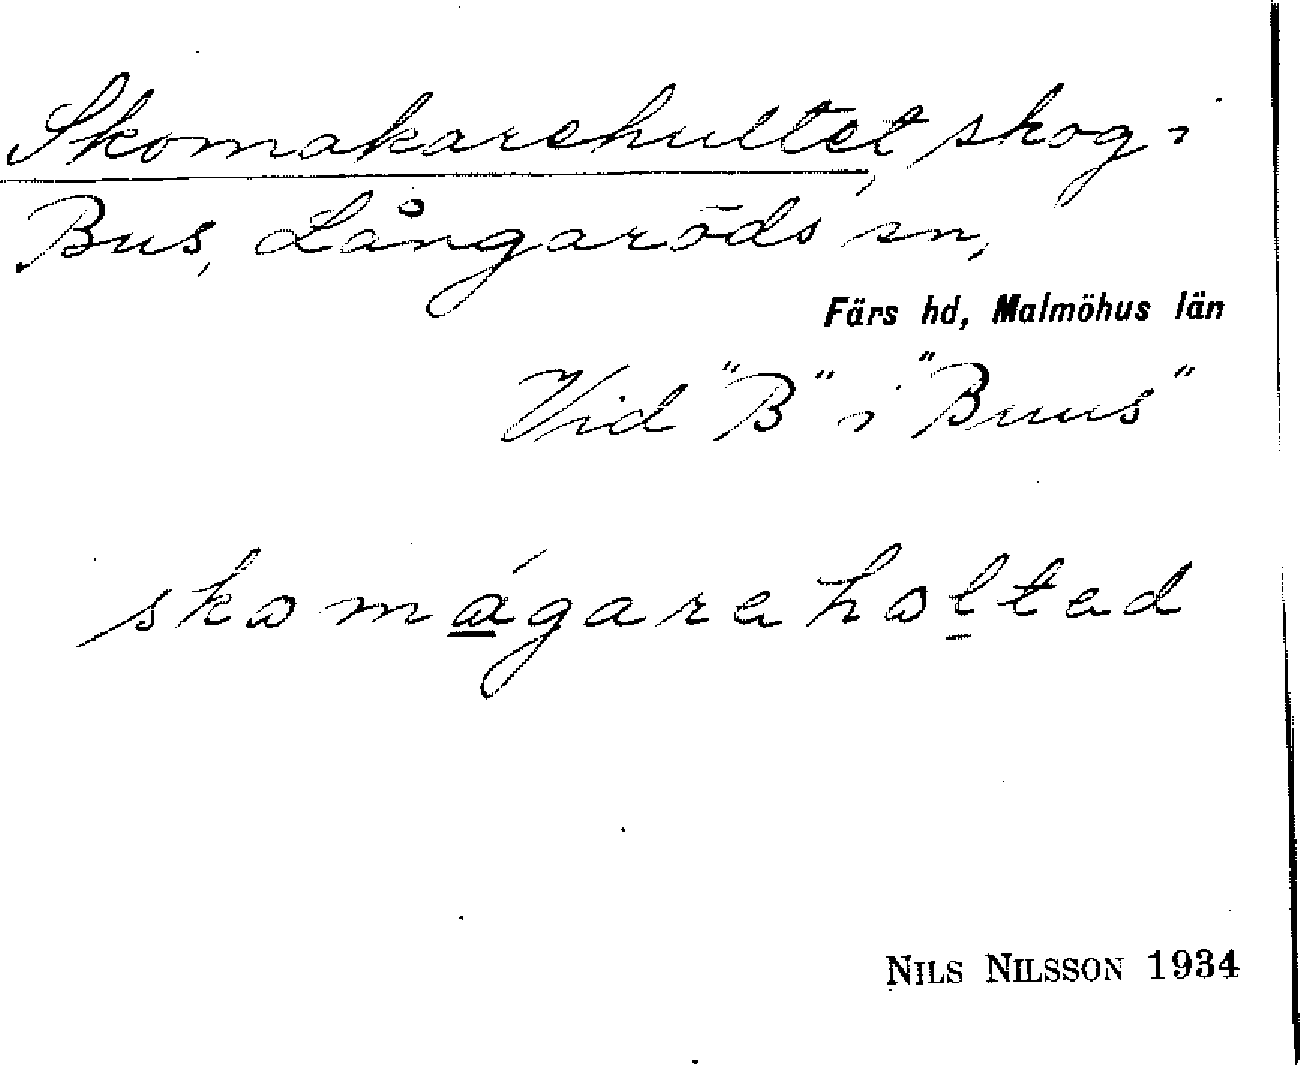 Skomakarehultet, skog i
Bus, Långaröds sn,
Färs hd, Malmöhus län
Vid "B" i "Buus"
skomágarehol̲tad
NILS NILSSON 1934